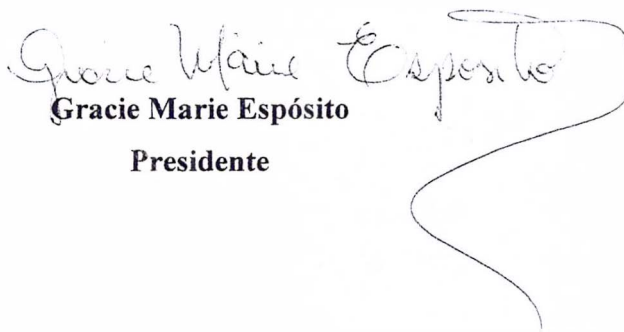 Gracie Marie Esposito
Gracie Marie Espósito
Presidente